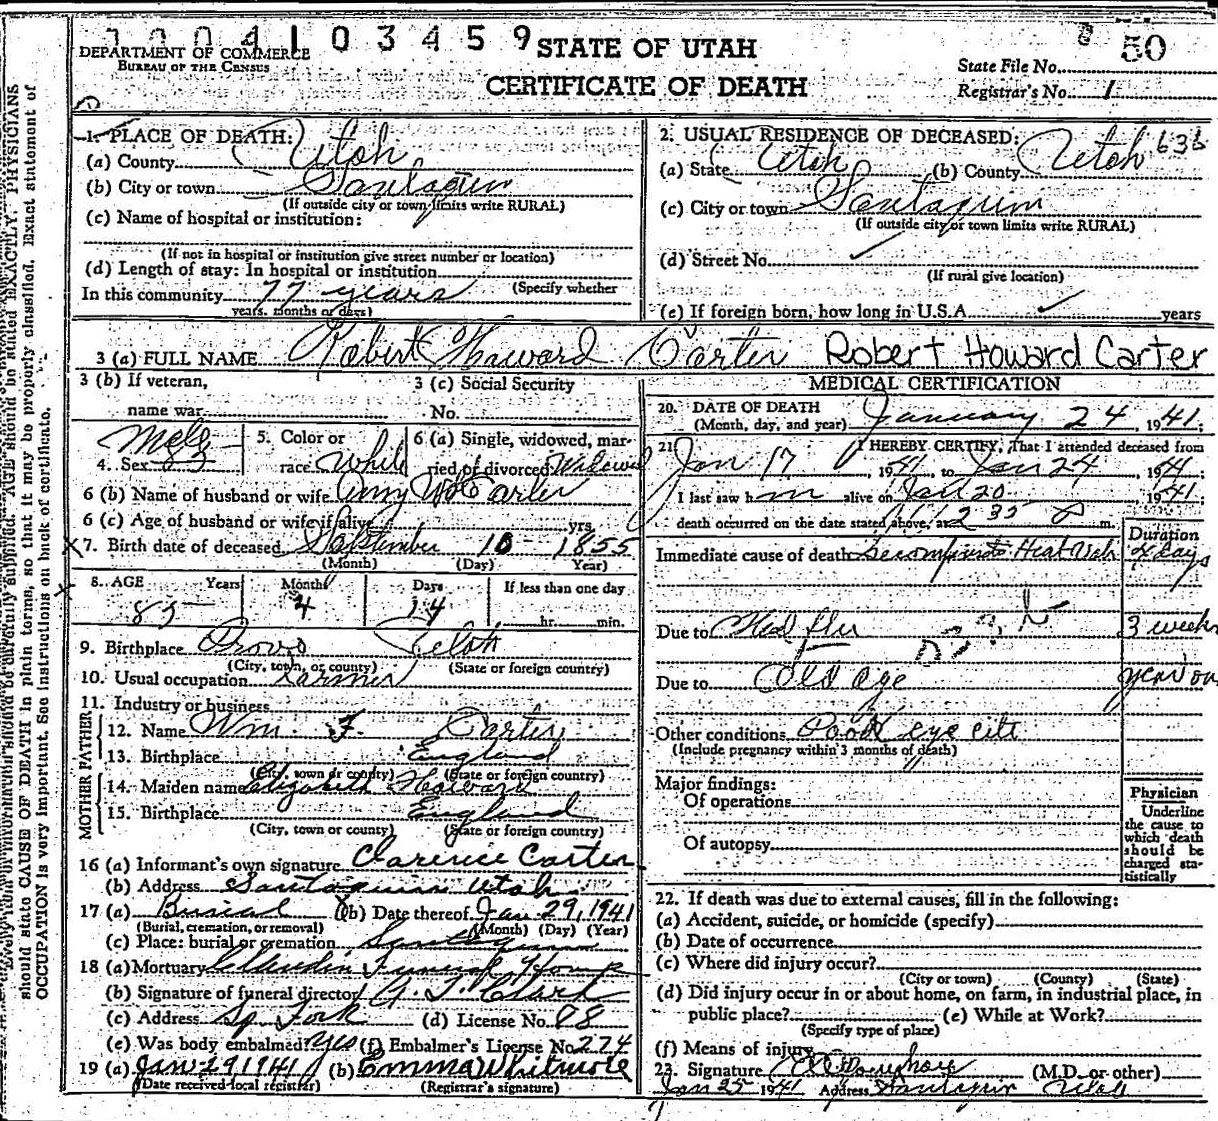 0 0 0 4 1 0 3 4 5 9
DEPARTMENT OF COMMERCE
BUREAU OF THE CENSUS
STATE OF UTAH
CERTIFICATE OF DEATH
50
State File No.
Registrar's No. 1
1. PLACE OF DEATH:
(a) County Utah
(b) City or town Santaquin
(If outside city or town limits write RURAL)
(c) Name of hospital or institution:
(If not in hospital or institution give street number or location)
(d) Length of stay: In hospital or institution
(Specify whether
In this community 77 years
years, months or days)
2. USUAL RESIDENCE OF DECEASED: 636
(a) State Utah (b) County Utah
(c) City or town Santaquin
(If outside city or town limits write RURAL)
(d) Street No.
(If rural give location)
(e) If foreign born, how long in U.S.A. years
3 (a) FULL NAME Robert Haward Carter Robert Howard Carter
3 (b) If veteran,
name war
3 (c) Social Security
No.
4. Sex Male
5. Color or
race White
6 (a) Single, widowed, mar-
ried or divorced Widowed
6 (b) Name of husband or wife Amy Carter
6 (c) Age of husband or wife if alive yrs.
7. Birth date of deceased September 10 1855
(Month) (Day) Year)
8. AGE Years Months Days If less than one day
85 4 14 hr. min.
9. Birthplace Provo Utah
(City, town, or county) (State or foreign country)
10. Usual occupation Farmer
11. Industry or business
FATHER
12. Name Wm. F. Carter
13. Birthplace England
(City, town or county) (State or foreign country)
MOTHER
14. Maiden name Elizabeth Haward
15. Birthplace England
(City, town or county) (State or foreign country)
16 (a) Informant's own signature Clarence Carter
(b) Address Santaquin Utah
17 (a) Burial (b) Date thereof Jan. 29, 1941
(Burial, cremation, or removal) (Month) (Day) (Year)
(c) Place: burial or cremation Santaquin
18 (a) Mortuary Claudin Funeral Home
(b) Signature of funeral director A. T. Clark
(c) Address Sp. Fork (d) License No. 88
(e) Was body embalmed? yes (f) Embalmer's License No. 274
19 (a) Jan. 29 1941 (b) Emma Whitmore
(Date received local registrar) (Registrar's signature)
MEDICAL CERTIFICATION
20. DATE OF DEATH
(Month, day, and year) January 24, 1941.
21. I HEREBY CERTIFY, That I attended deceased from
Jan 17, 1941, to Jan 24, 1941
I last saw h m alive on Jan 20, 1941
death occurred on the date stated above, at 12 35 m.
Duration
Immediate cause of death
days
Due to flu 3 weeks
Due to Old age
Other conditions
(Include pregnancy within 3 months of death)
Major findings:
Of operations
Of autopsy
Physician
Underline
the cause to
which death
should be
charged sta-
tistically
22. If death was due to external causes, fill in the following:
(a) Accident, suicide, or homicide (specify)
(b) Date of occurrence
(c) Where did injury occur?
(City or town) (County) (State)
(d) Did injury occur in or about home, on farm, in industrial place, in
public place? (e) While at Work?
(Specify type of place)
(f) Means of injury
23. Signature (M.D. or other)
Jan 25 1941 Address Santaquin Utah
should state CAUSE OF DEATH in plain terms, so that it may be properly classified. Exact statement of
OCCUPATION is very important. See instructions on back of certificate.